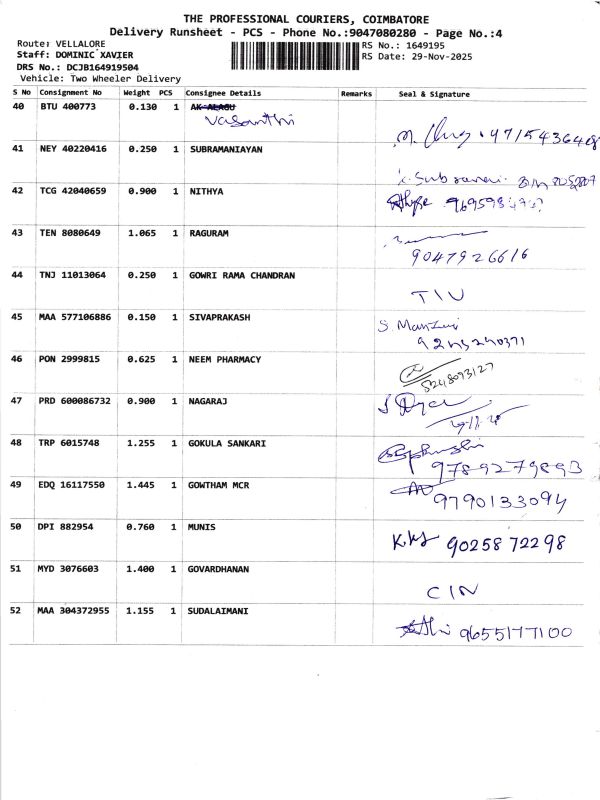 THE PROFESSIONAL COURIERS, COIMBATORE
Delivery Runsheet - PCS - Phone No.:9047080280 - Page No.:4
Route: VELLALORE
RS No.: 1649195
Staff: DOMINIC XAVIER
RS Date: 29-Nov-2025
DRS No.: DCJB164919504
Vehicle: Two Wheeler Delivery
S No Consignment No Weight PCS Consignee Details Remarks Seal & Signature
40 BTU 400773 0.130 1 AK ALAGU
Vasanthi
9715436408
41 NEY 40220416 0.250 1 SUBRAMANIAYAN
42 TCG 42040659 0.900 1 NITHYA
43 TEN 8080649 1.065 1 RAGURAM
9047926616
44 TNJ 11013064 0.250 1 GOWRI RAMA CHANDRAN
TIU
45 MAA 577106886 0.150 1 SIVAPRAKASH
46 PON 2999815 0.625 1 NEEM PHARMACY
8248093127
47 PRD 600086732 0.900 1 NAGARAJ
48 TRP 6015748 1.255 1 GOKULA SANKARI
9789279893
49 EDQ 16117550 1.445 1 GOWTHAM MCR
9790133094
50 DPI 882954 0.760 1 MUNIS
9025872298
51 MYD 3076603 1.400 1 GOVARDHANAN
CIN
52 MAA 304372955 1.155 1 SUDALAIMANI
9655177100